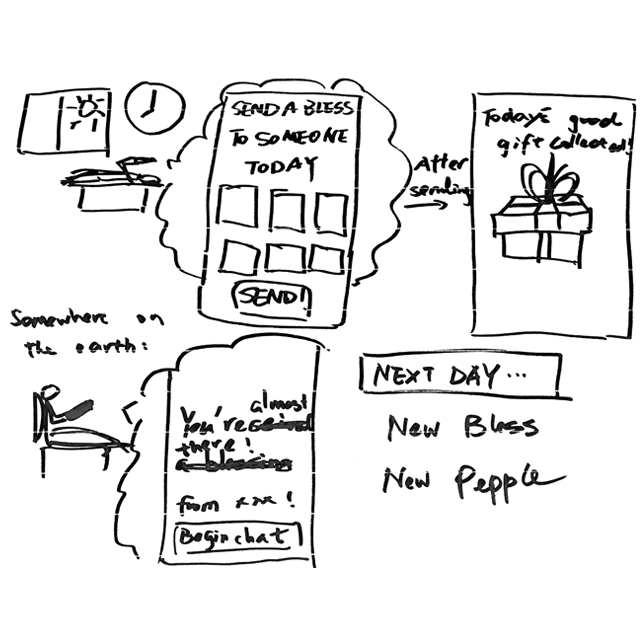 SEND A BLESS
TO SOMEONE
TODAY
SEND!
After
sending
Today's good
gift collected!
Somewhere on
the earth:
almost
You're
there!
a blessing
from xxx!
Begin chat
NEXT DAY...
New Bless
New Pepple